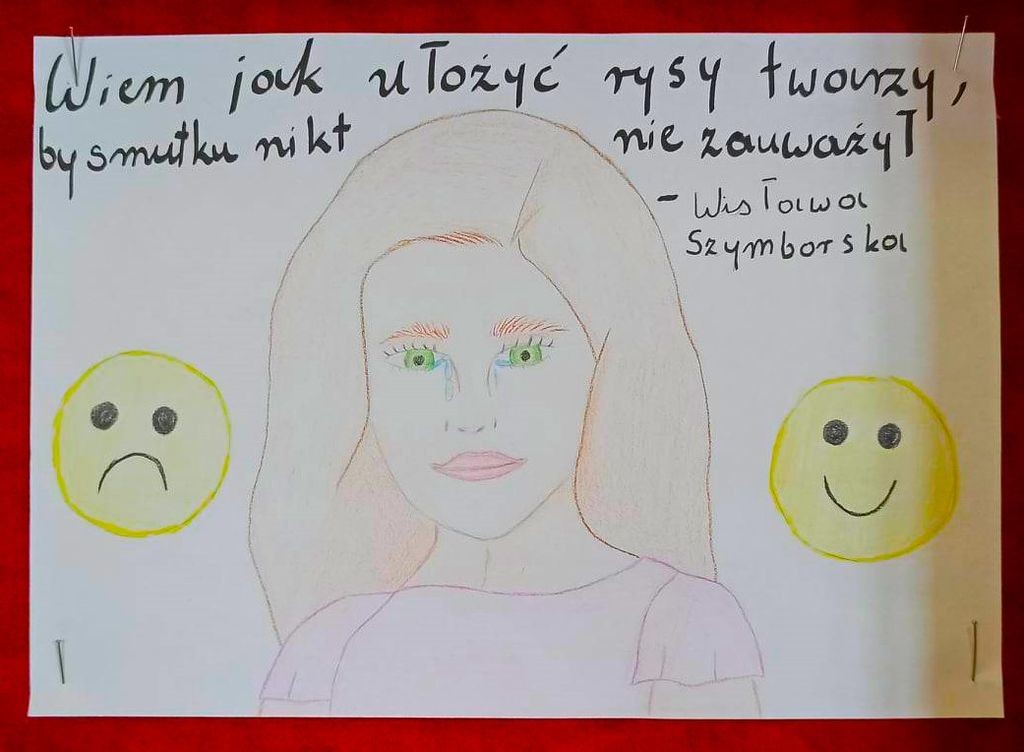 Wiem jak ułożyć rysy twarzy,
by smutku nikt nie zauważył
- Wisława
Szymborska